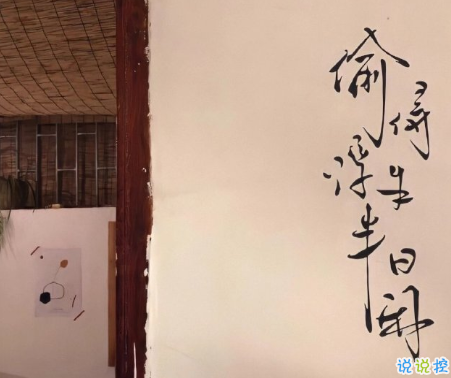 偷得浮生半日闲
说说控